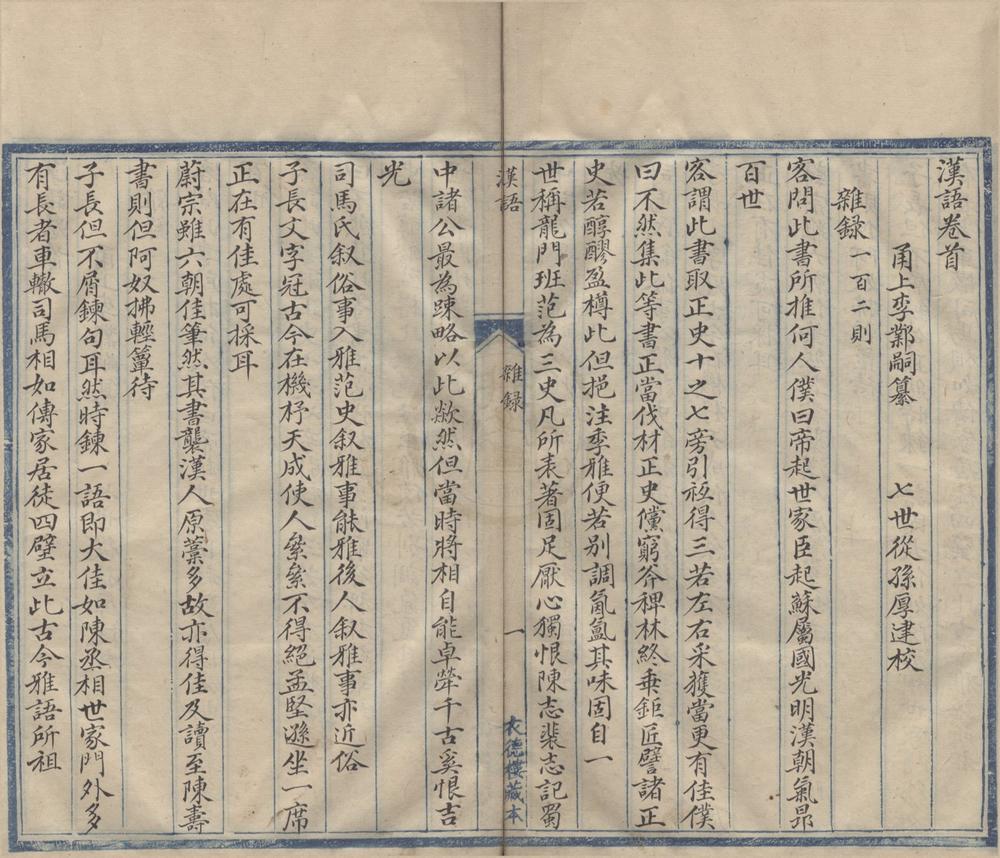 漢語卷首
甬上李鄴嗣纂 七世從孫厚建校
雜録一百二則
客問此書所推何人僕曰帝起世家臣起蘇屬國光明漢朝氣昻
百世
客謂此書取正史十之七旁引秖得三若左右采獲當更有佳僕
曰不然集此等書正當伐材正史儻窮斧稗林終乖鉅匠譬諸正
史若醇醪盈樽此但挹注季雅便若别調氤氲其味固自一
世稱龍門班范為三史凡所表著固足厭心獨恨陳志裴志記蜀
漢語 雜録 一 衣德樓藏本
中諸公最為踈略以此歉然但當時將相自能卓犖千古奚恨吉
光
司馬氏叙俗事入雅范史叙雅事能雅後人叙雅事亦近俗
子長文字冠古今在機杼天成使人纍纍不得絕孟堅遜坐一席
正在有佳處可採耳
蔚宗雖六朝佳筆然其書襲漢人原藁多故亦得佳及讀至陳壽
書則但阿奴拂輕簞待
子長但不屑鍊句耳然時鍊一語即大佳如陳丞相世家門外多
有長者車轍司馬相如傳家居徒四壁立此古今雅語所祖